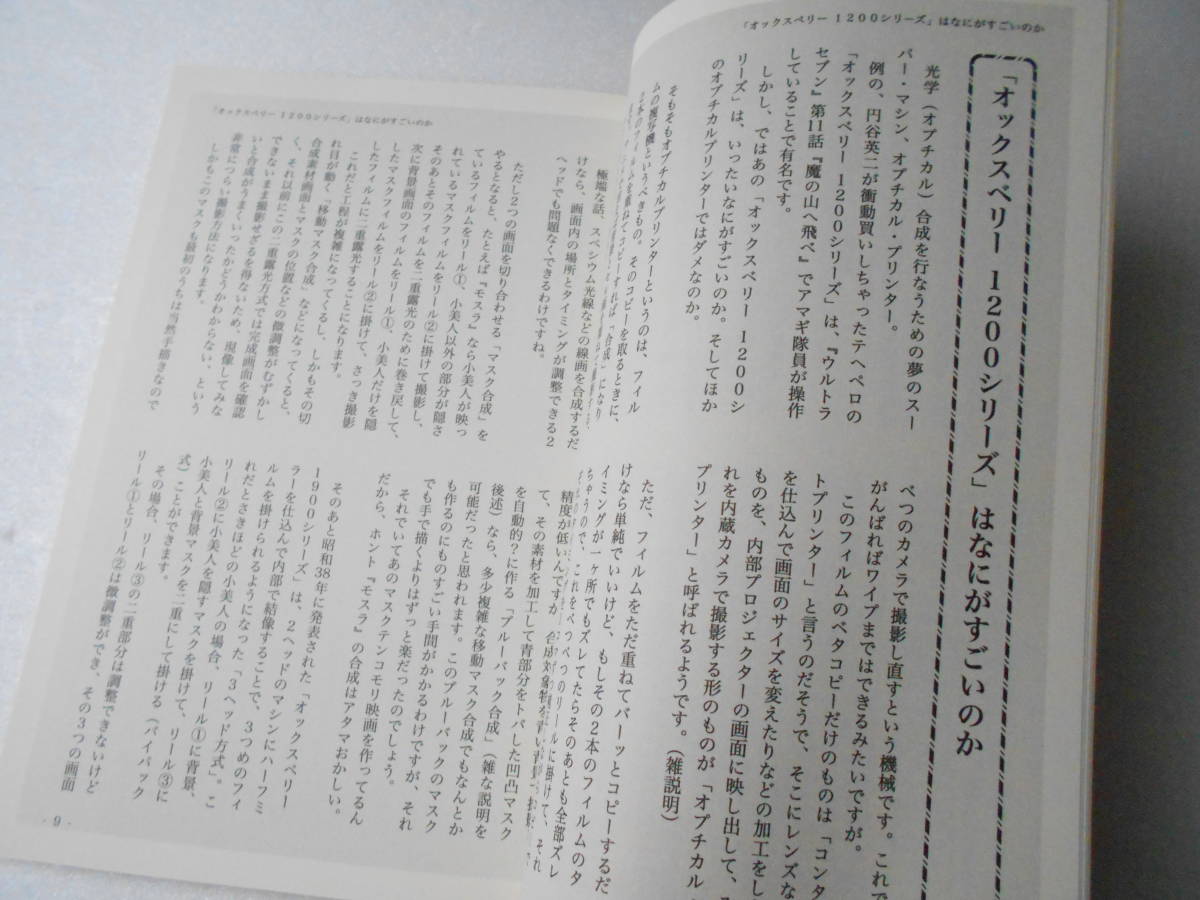 「オックスベリー 1200シリーズ」はなにがすごいのか
「オックスベリー 1200シリーズ」はなにがすごいのか
光学（オプチカル）合成を行なうための夢のスー
パー・マシン、オプチカル・プリンター。
例の、円谷英二が衝動買いしちゃったテヘペロの
「オックスベリー 1200シリーズ」は、『ウルトラ
セブン』第11話『魔の山へ飛べ』でアマギ隊員が操作
していることで有名です。
しかし、ではあの「オックスベリー 1200シ
リーズ」は、いったいなにがすごいのか。そしてほか
のオプチカルプリンターではダメなのか。
そもそもオプチカルプリンターというのは、フィル
ムの複写機というべきもの。そのコピーを取るときに、
2本のフィルムを重ねてコピーすれば「合成」になり
べつのカメラで撮影し直すという機械です。これで
がんばればワイプまではできるみたいですが。
このフィルムのベタコピーだけのものは「コンタ
トプリンター」と言うのだそうで、そこにレンズな
を仕込んで画面のサイズを変えたりなどの加工をし
ものを、内部プロジェクターの画面に映し出して、
れを内蔵カメラで撮影する形のものが「オプチカル
プリンター」と呼ばれるようです。（雑説明）
ただ、フィルムをただ重ねてバーッとコピーするだ
けなら単純でいいけど、もしその2本のフィルムのタ
イミングが一ヶ所でもズレてたらそのあとも全部ズレ
ちゃうので、これをべつべつのリールに掛けて、それ
「オックスベリー 1200シリーズ」はなにがすごいのか
極端な話、スペシウム光線などの線画を合成するだ
けなら、画面内の場所とタイミングが調整できる2
ヘッドでも問題なくできるわけですね。
ただし2つの画面を切り合わせる「マスク合成」を
やるとなると、たとえば『モスラ』なら小美人が映っ
ているフィルムをリール①、小美人以外の部分が隠さ
れているマスクフィルムをリール②に掛けて撮影し、
そのあとそのフィルムを二重露光のために巻き戻して、
次に背景画面のフィルムをリール①、小美人だけを隠
したマスクフィルムをリール②に掛けて、さっき撮影
したフィルムに二重露光することになります。
これだと工程が複雑になってくるし、しかもその切
れ目が動く「移動マスク合成」などになってくると、
合成素材画面とマスクの位置などの微調整がむずかし
く、それ以前にこの二重露光方式では完成画面を確認
できないまま撮影せざるを得ないため、現像してみな
いと合成がうまくいったかどうかわからない、という
非常につらい撮影方法になります。
しかもこのマスクも最初のうちは当然手描きなので
精度が低いんですが、
て、その素材を加工して青部分をトバした凹凸マスク
を自動的？に作る「ブルーバック合成」（雑な説明を
後述）なら、多少複雑な移動マスク合成でもなんとか
可能だったと思われます。このブルーバックのマスク
も作るのにものすごい手間がかかるわけですが、それ
でも手で描くよりはずっと楽だったのでしょう。
それでいてあのマスクテンコモリ映画を作ってるん
だから、ホント『モスラ』の合成はアタマおかしい。
そのあと昭和38年に発表された「オックスベリー
1900シリーズ」は、2ヘッドのマシンにハーフミ
ラーを仕込んで内部で結像することで、3つめのフィ
ルムを掛けられるようになった「3ヘッド方式」。こ
れだとさきほどの小美人の場合、リール①に背景、
リール②に小美人を隠すマスクを掛けて、リール③に
小美人と背景マスクを二重にして掛ける（バイパック
式）ことができます。
その場合、リール③の二重部分は調整できないけど
リール①とリール②は微調整ができ、その3つの画面
- 9 -